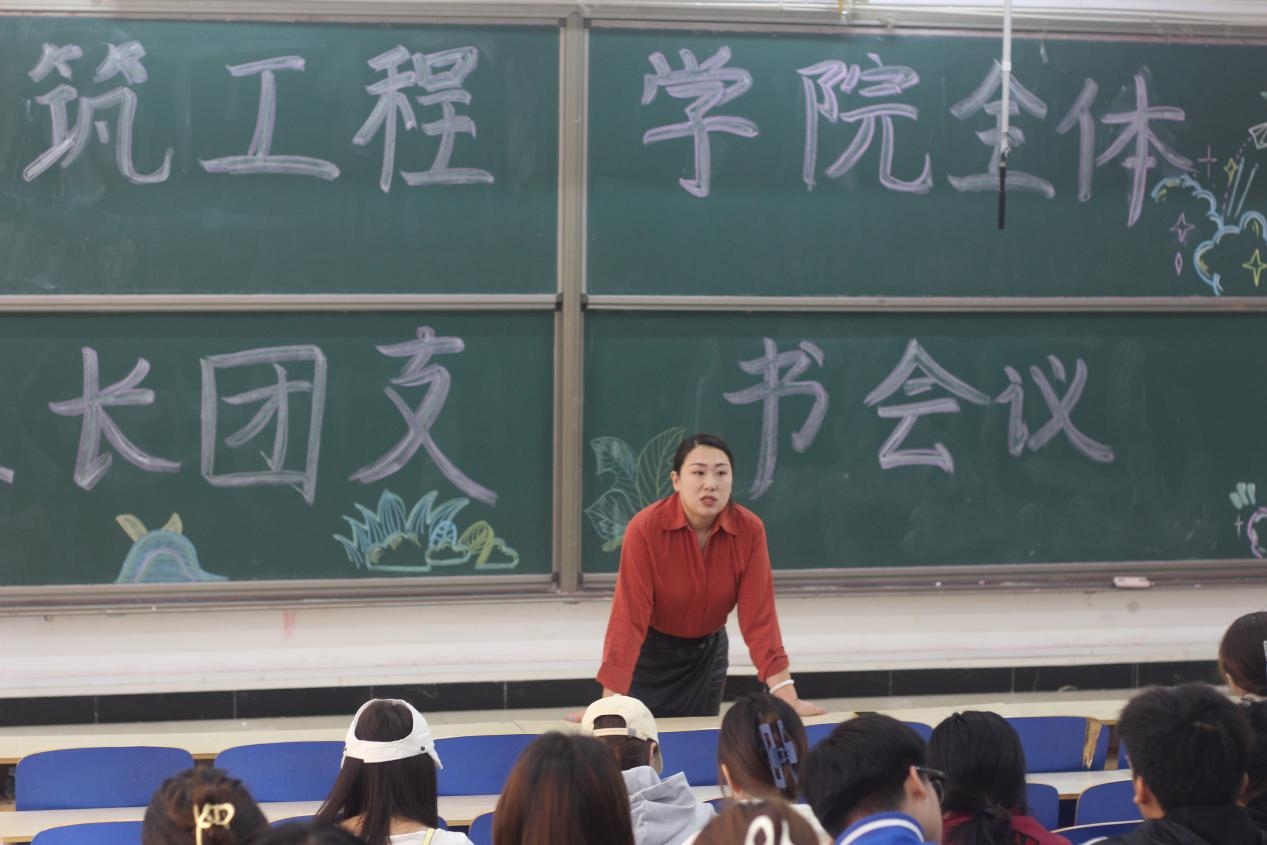 筑工程学院全体
长团支书会议